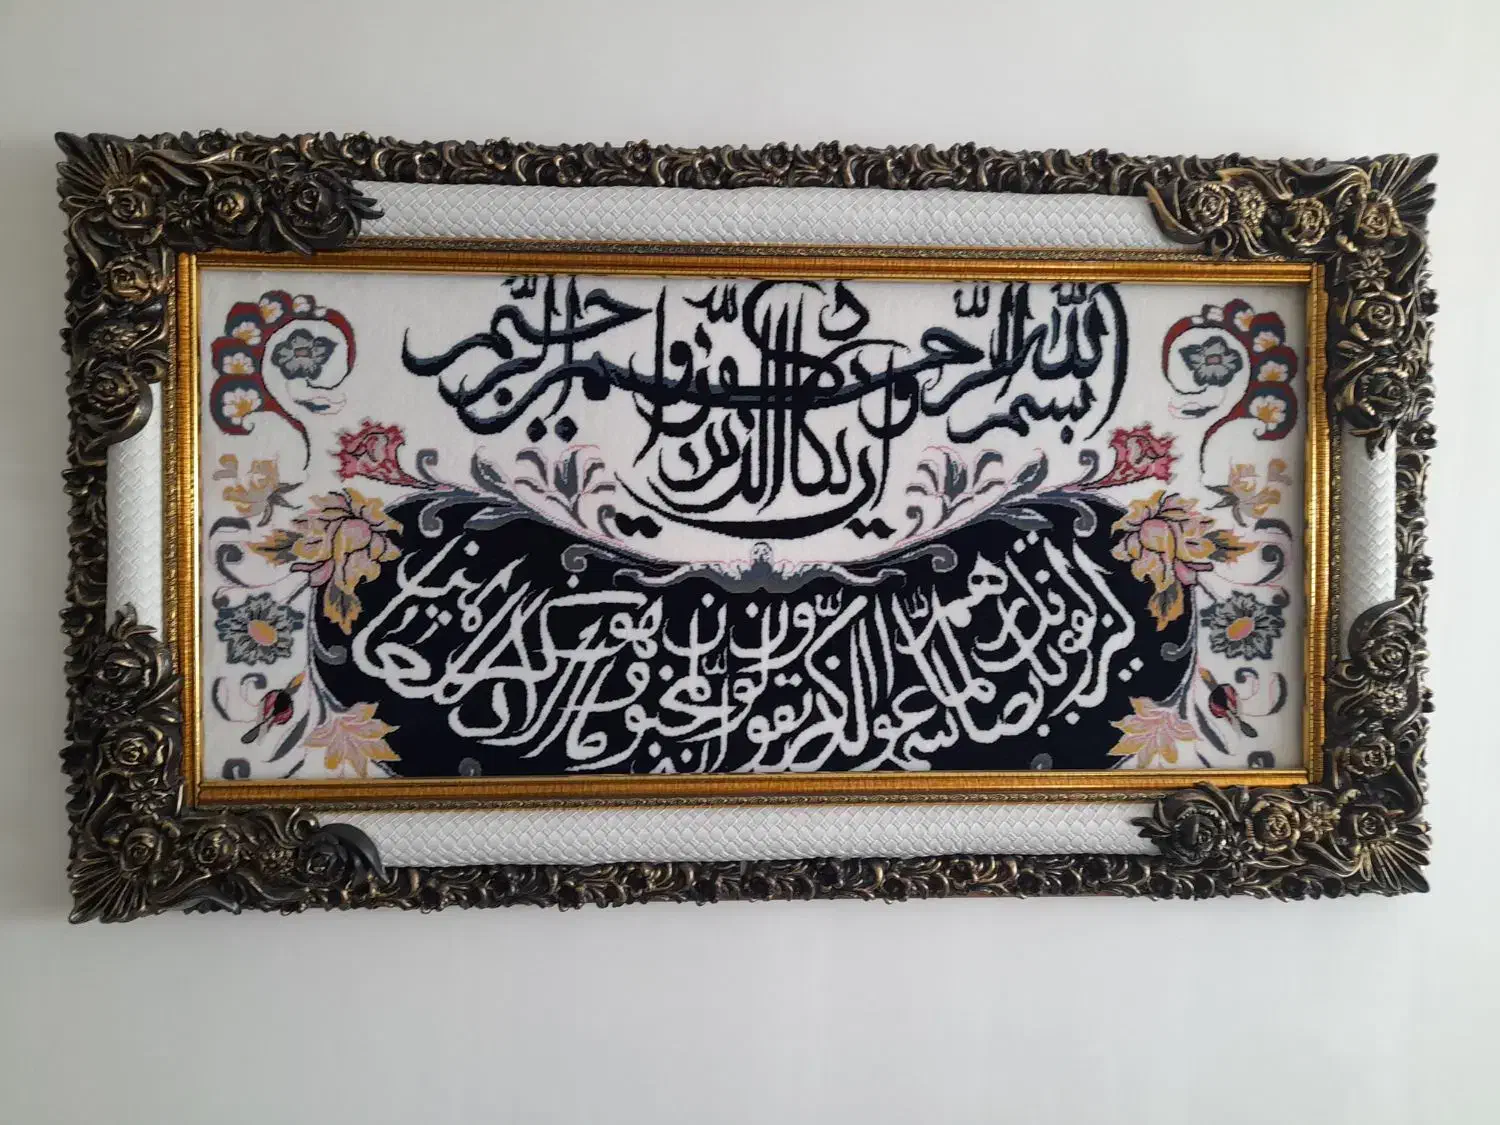 بسم الله الرحمن الرحيم
وإن يكاد الذين كفروا
ليزلقونك بأبصارهم لما سمعوا الذكر ويقولون إنه لمجنون وما هو إلا ذكر للعالمين